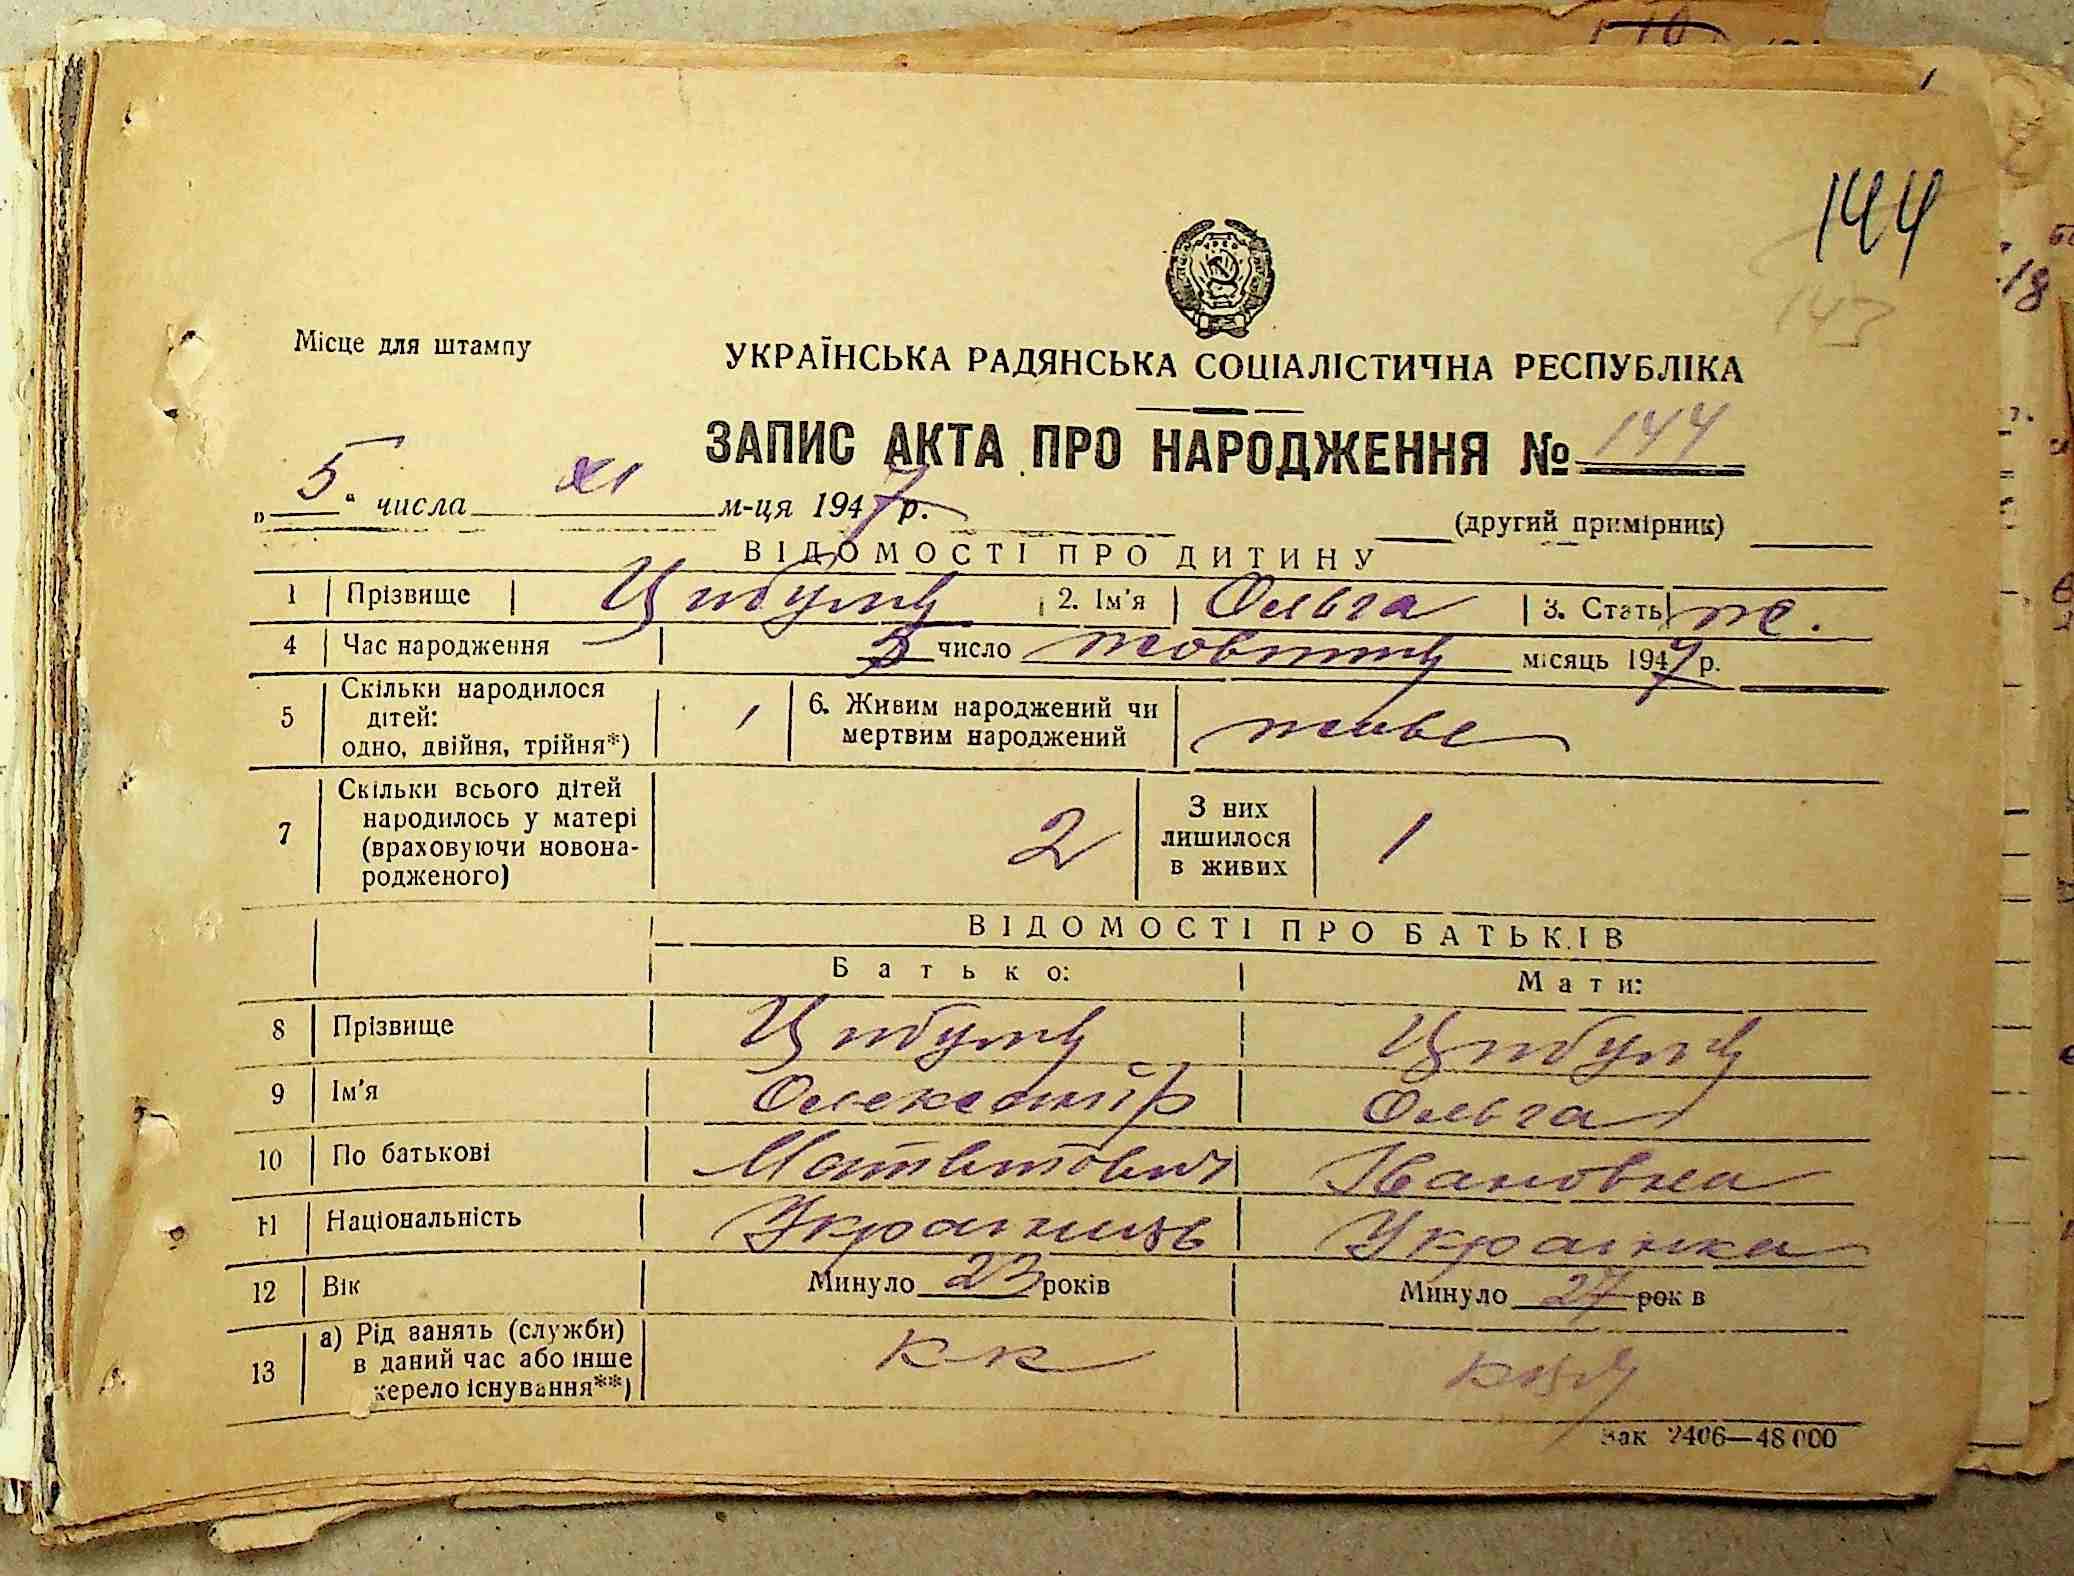 144
143
Місце для штампу
УКРАЇНСЬКА РАДЯНСЬКА СОЦІАЛІСТИЧНА РЕСПУБЛІКА
ЗАПИС АКТА ПРО НАРОДЖЕННЯ № 144
„5“ числа XI м-ця 1947 р.
(другий примірник)
ВІДОМОСТІ ПРО ДИТИНУ
1 Прізвище Цибуля 2. Ім'я Ольга 3. Стать ж.
4 Час народження 5 число жовтня місяць 1947 р.
5 Скільки народилося дітей: одно, двійня, трійня*) 1 6. Живим народжений чи мертвим народжений живе
7 Скільки всього дітей народилось у матері (враховуючи новонародженого) 2 З них лишилося в живих 1
ВІДОМОСТІ ПРО БАТЬКІВ
Батько: Мати:
8 Прізвище Цибуля Цибуля
9 Ім'я Олександр Ольга
10 По батькові Матвійович Івановна
11 Національність Українець Українка
12 Вік Минуло 23 років Минуло 27 рок в
13 а) Рід занять (служби) в даний час або інше жерело існування**) к-к
Зак 2406—48 000